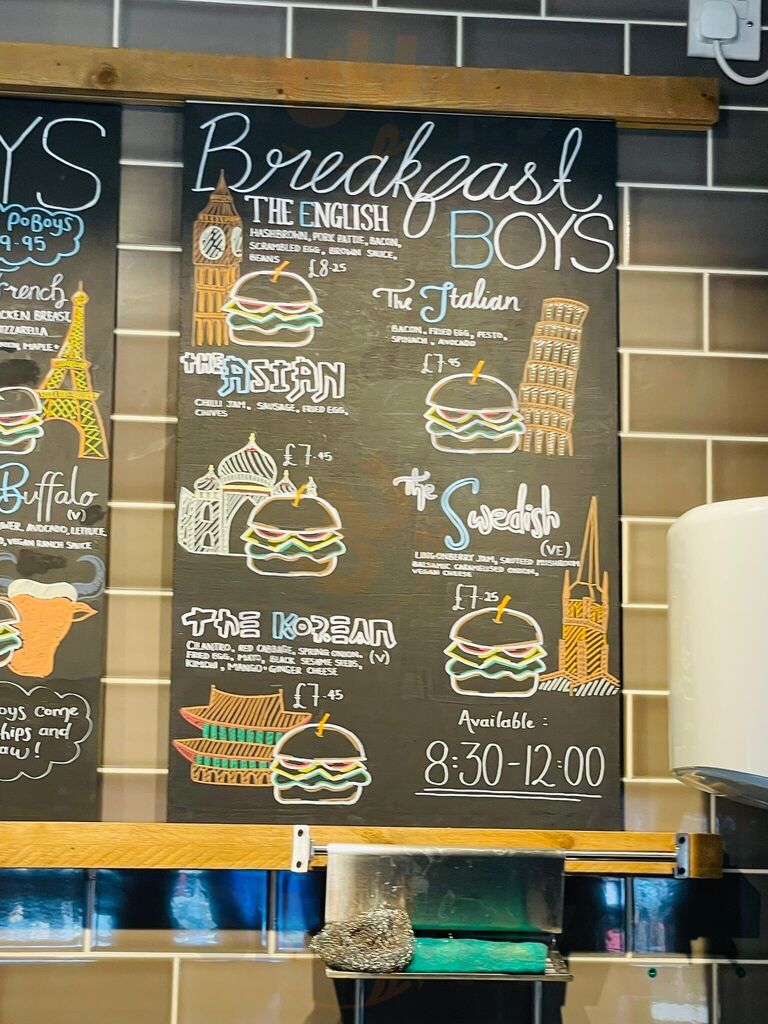 YS
PoBoys
9.95
French
CKEN BREAST,
OZZARELLA
ONION, MAPLE
Buffalo
(V)
AVOCADO, LETTUCE,
VEGAN RANCH SAUCE
oys come
hips and
aw!
Breakfast
BOYS
THE ENGLISH
HASHBROWN, PORK PATTIE, BACON,
SCRAMBLED EGG, BROWN SAUCE,
BEANS
£8.25
The Italian
BACON, FRIED EGG, PESTO,
SPINACH, AVOCADO
£7.95
THE ASIAN
CHILLI JAM, SAUSAGE, FRIED EGG,
CHIVES
£7.45
The Swedish
(VE)
LINGONBERRY JAM, SAUTEED MUSHROOM
BALSAMIC CARAMELISED ONION,
VEGAN CHEESE
£7.25
THE KOREAN
CILANTRO, RED CABBAGE, SPRING ONION,
FRIED EGG, MAYO, BLACK SESAME SEEDS,
(V)
KIMCHI, MANGO+GINGER CHEESE
£7.45
Available:
8:30-12:00